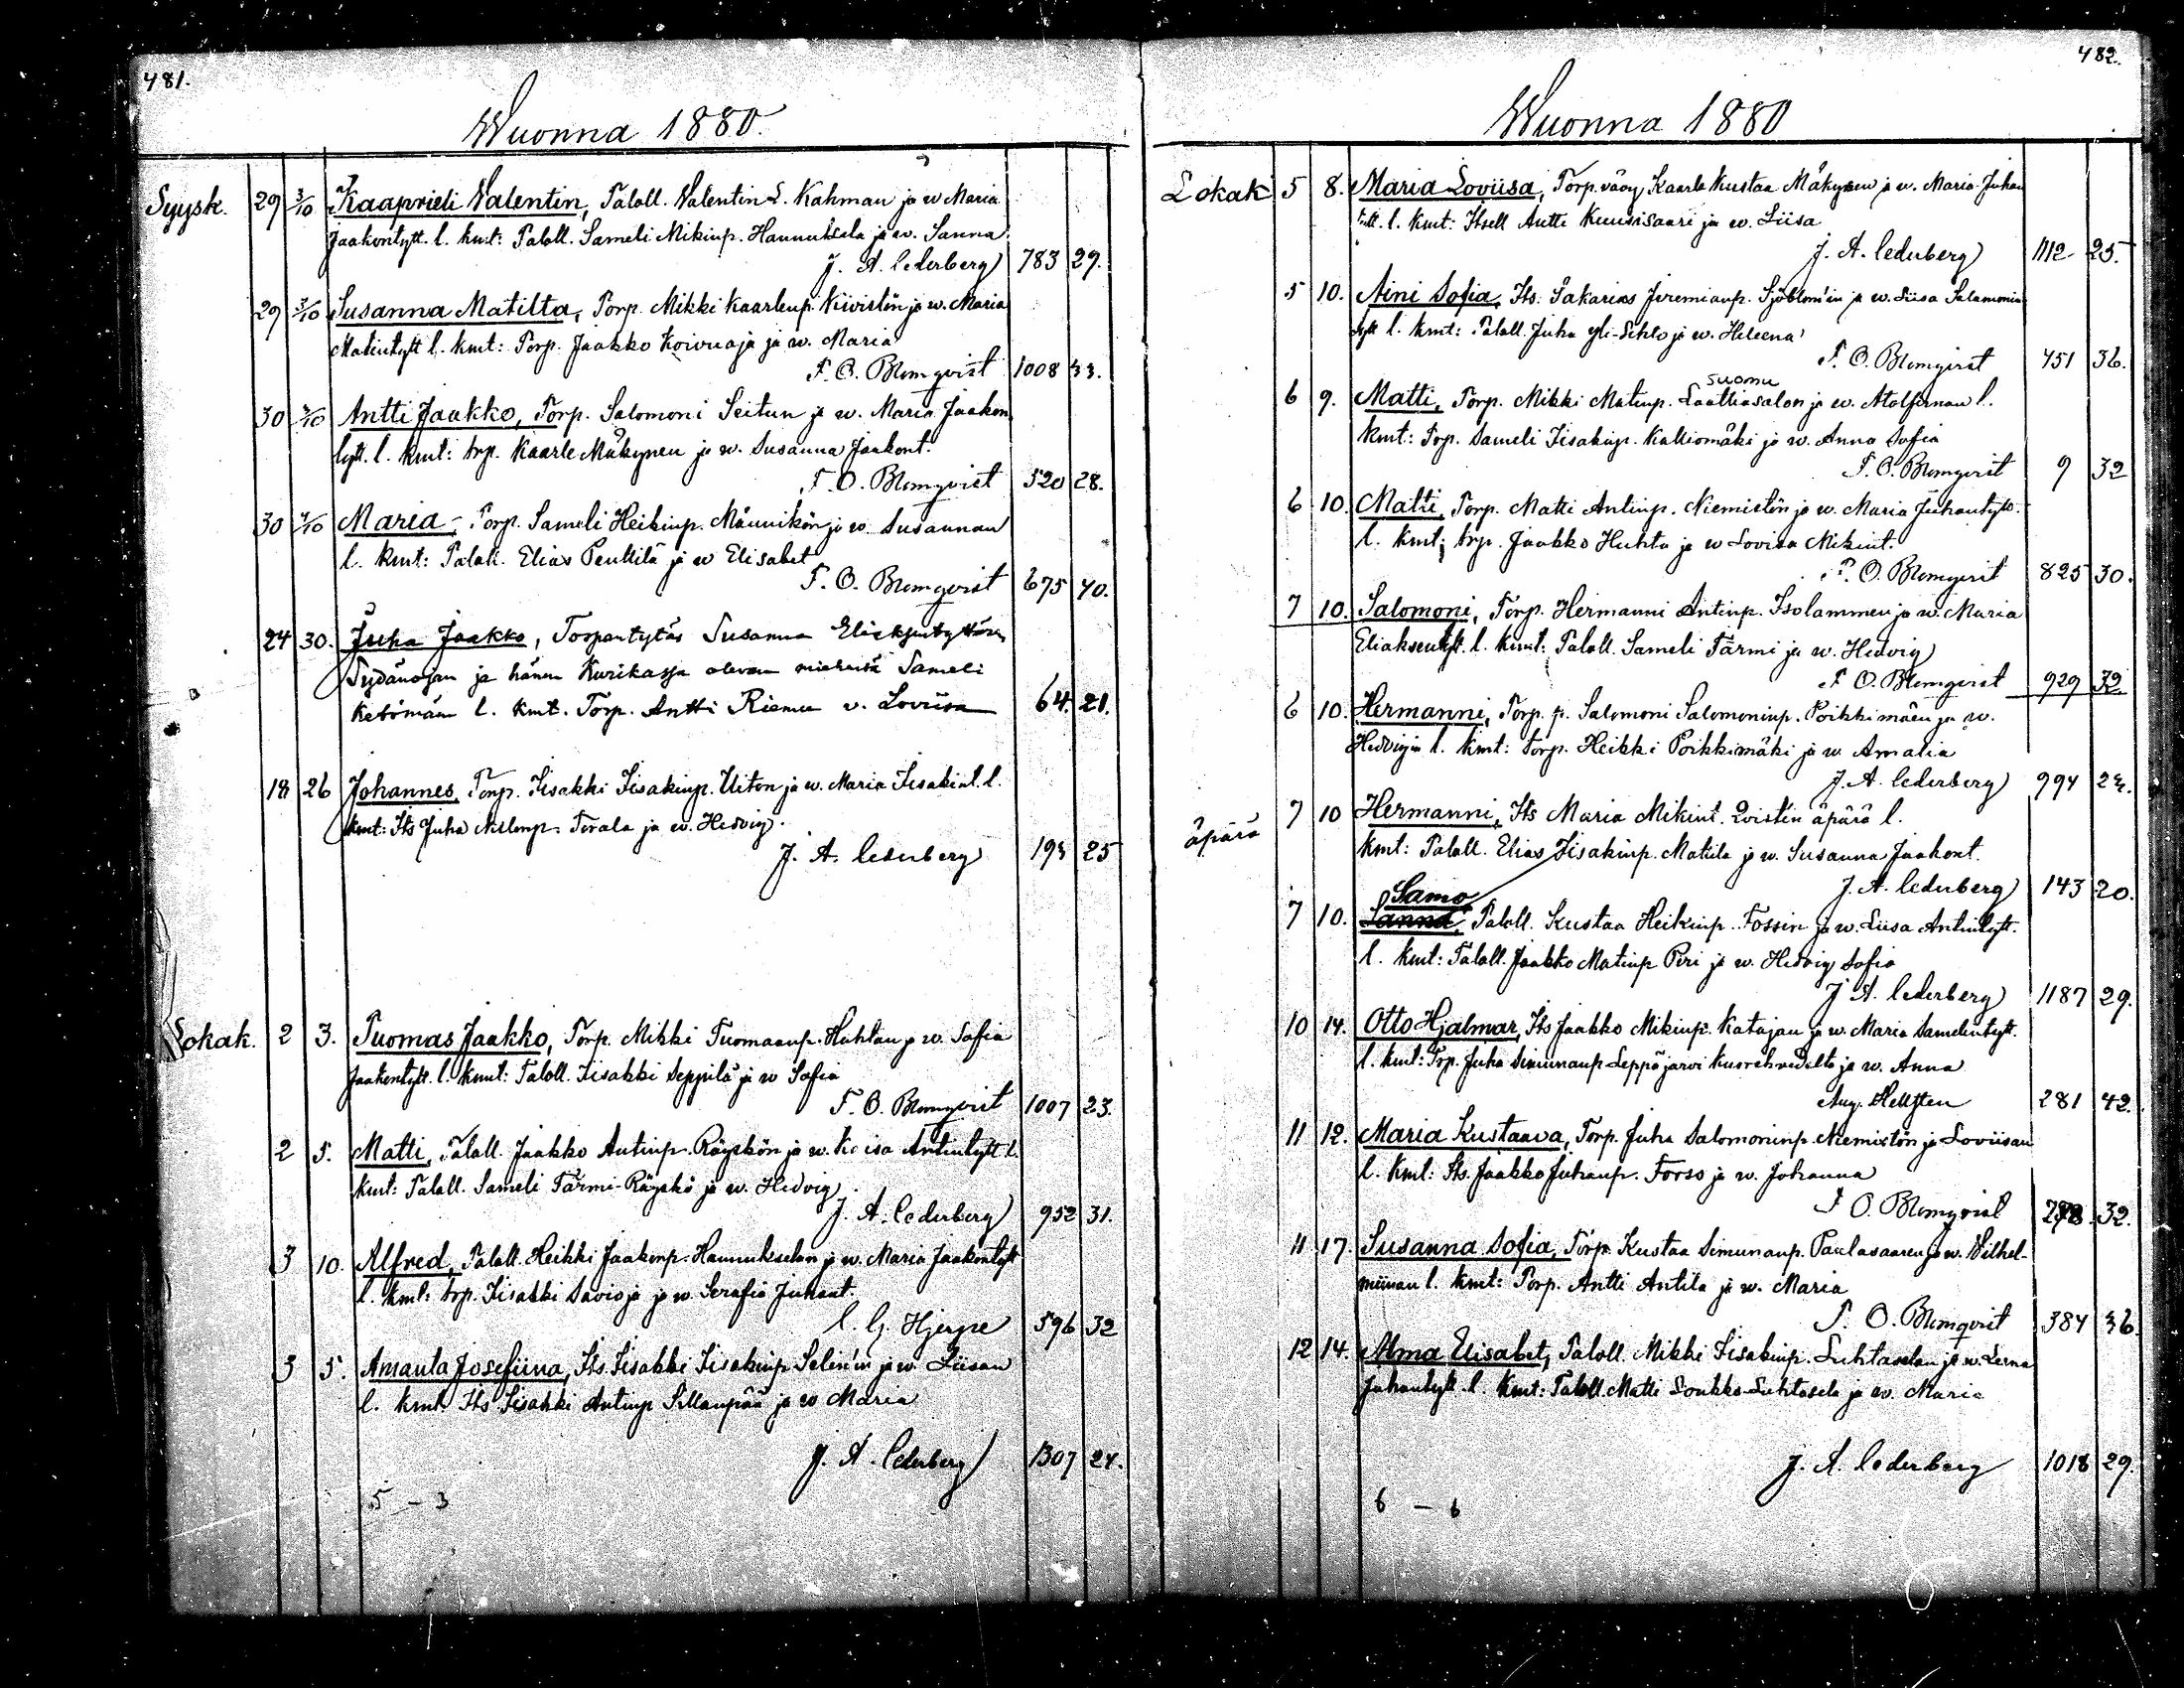 481.
Wuonna 1880.
Syysk. 29 3/10 Kaaprieli Walentin, Taloll. Walentin L. Kahman ja w Maria
Jaakontytt. l. kmt: Taloll. Sameli Mikinp. Hannuksela ja w. Sanna
J. A. Cederberg 783 29.
29 3/10 Susanna Matilta, Torp. Mikki Kaarlenp. Kivistön ja w. Maria
Matintytt l. kmt: Torp. Jaakko Koivuaja ja w. Maria
F. O. Blomqvist 1008 33.
30 3/10 Antti Jaakko, Torp. Salomoni Seitun ja w. Maria Jaakon
tytt. l. kmt: trp. Kaarle Mäkynen ja w. Susanna Jaakont.
F. O. Blomqvist 520 28.
30 3/10 Maria, Torp. Sameli Heikinp. Männikön ja w. Susannan
l. kmt: Taloll. Elias Penttilä ja w Elisabet
F. O. Blomqvist 675 40.
24 30. Juha Jaakko, Torpantytär Susanna Eliaksentyttären
Sydänojan ja hänen Kurikassa olevan miehensä Sameli
Ketomäen l. kmt. Torp. Antti Riemu v. Loviisa 64. 21.
18 26 Johannes, Torp. Iisakki Iisakinp. Uiton ja w. Maria Iisakint. l.
kmt: Its Juha Nislenp. Terala ja w. Hedvig.
J. A. Cederberg 193 25
Lokak. 2 3. Tuomas Jaakko, Torp. Mikki Tuomaanp. Huhtan ja w. Sofia
Jaakontytt. l. kmt: Taloll. Iisakki Seppilä ja w Sofia
F. O. Blomqvist 1007 23.
2 5. Matti, Taloll. Jaakko Antinp. Räyskön ja w. Antintytt l.
kmt: Taloll. Sameli Färmi-Räyskö ja w. Hedvig.
J. A. Cederberg 952 31.
3 10. Alfred, Taloll. Heikki Jaakonp. Hannukselan ja w. Maria Jaakontytt
l. kmt: trp. Iisakki Savioja ja w. Serafia Juhant.
C. G. Hjerpe 596 32
3 5. Amanta Josefiina, Its. Iisakki Iisakinp. Selin'in ja w. Liisan
l. kmt Its Iisakki Antinp Sillanpää ja w Maria
J. A. Cederberg 1307 24.
5 - 3
482.
Wuonna 1880
Lokak 5 8. Maria Loviisa, Torp. vävy Kaarle Kustaa Mäkynen ja w. Maria Juhan
tytt. l. kmt: Itsell Antti Kuusisaari ja w. Liisa
J. A. Cederberg 1112 25.
5 10. Aini Sofia, Its. Sakarias Jeremianp. Sjöblom'in ja w. Liisa Salomonin
tytt l. kmt: Taloll. Juha Yli-Sihto ja w. Heleena
F. O. Blomqvist 451 36.
suomu
6 9. Matti, Torp. Mikki Matinp. Laattiasalon ja w. Atolfinan l.
kmt: Trp. Sameli Iisakinp. Kalliomäki ja w. Anna Sofia
F. O. Blomqvist 9 32
6 10. Matti, Torp. Matti Antinp. Niemistön ja w. Maria Juhantytt.
l. kmt; trp. Jaakko Huhta ja w Lovisa Mikint.
F. O. Blomqvist 825 30.
7 10. Salomoni, Torp. Hermanni Antinp. Isolammen ja w. Maria
Eliaksentytt. l. kmt: Taloll. Sameli Färmi ja w. Hedvig
F. O. Blomqvist 929 32
6 10. Hermanni, Torp. p. Salomoni Salomoninp. Poikkimäen ja w.
Hedvigin l. kmt: torp. Heikki Poikkimäki ja w Amalia
J. A. Cederberg 994 24.
äpärä 7 10 Hermanni, Its Maria Mikint. Qvistin äpärä l.
kmt: Taloll. Elias Iisakinp. Matila ja w. Susanna Jaakont.
J. A. Cederberg 143 20.
Samo
7 10. Sanna, Taloll. Kustaa Heikinp. Fossin ja w. Liisa Antintytt.
l. kmt: Taloll. Jaakko Matinp Piri ja w. Hedvig Sofia
J. A. Cederberg 1187 29.
10 14. Otto Hjalmar, Its Jaakko Mikinp. Katajan ja w. Maria Samelintytt.
l. kmt: Trp. Juha Simunanp Leppäjärvi ja w. Anna
Aug. Hellsten 281 42.
11 12. Maria Kustaava, Torp. Juha Salomoninp. Niemistön ja Loviisan
l. kmt: Its. Jaakko Juhanp. Forso ja w. Johanna
F O. Blomqvist 32.
11 17. Susanna Sofia, Torp. Kustaa Simunanp. Paulasaaren ja w. Wilhel-
miinan l. kmt: Torp. Antti Antila ja w. Maria
F. O. Blomqvist 384 36.
12 14. Alma Elisabet, Taloll. Mikki Iisakinp. Luhtaselan ja w. Leena
Juhantytt. l. kmt: Taloll. Matti Loukko-Luhtasela ja w. Maria
J. A. Cederberg 1018 29.
6 - 6